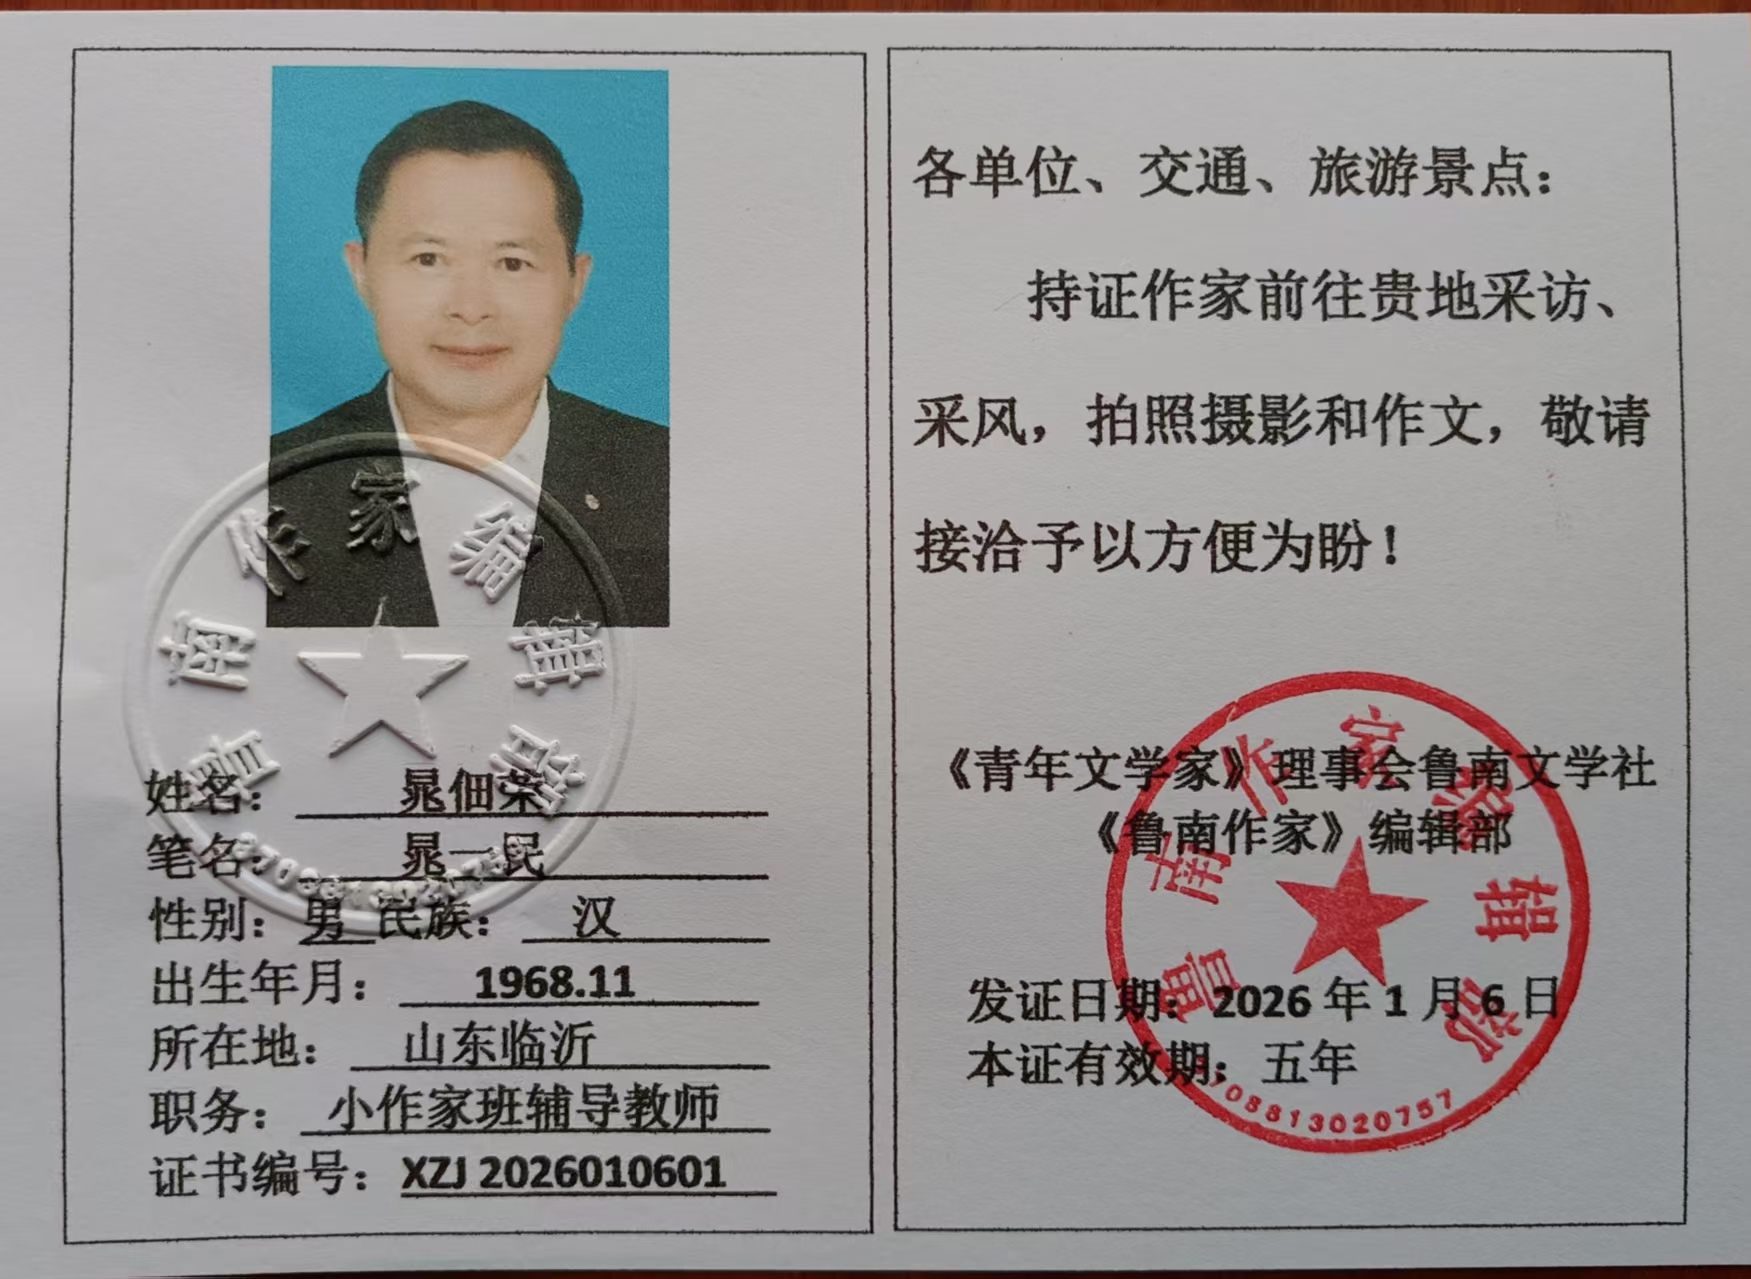 姓名： 晁佃荣
笔名： 晁一民
性别：男 民族：汉
出生年月： 1968.11
所在地： 山东临沂
职务： 小作家班辅导教师
证书编号：XZJ 2026010601
鲁南作家编辑部
各单位、交通、旅游景点：
持证作家前往贵地采访、
采风，拍照摄影和作文，敬请
接洽予以方便为盼！
《青年文学家》理事会鲁南文学社
《鲁南作家》编辑部
发证日期：2026年1月6日
本证有效期：五年
鲁南作家编辑部